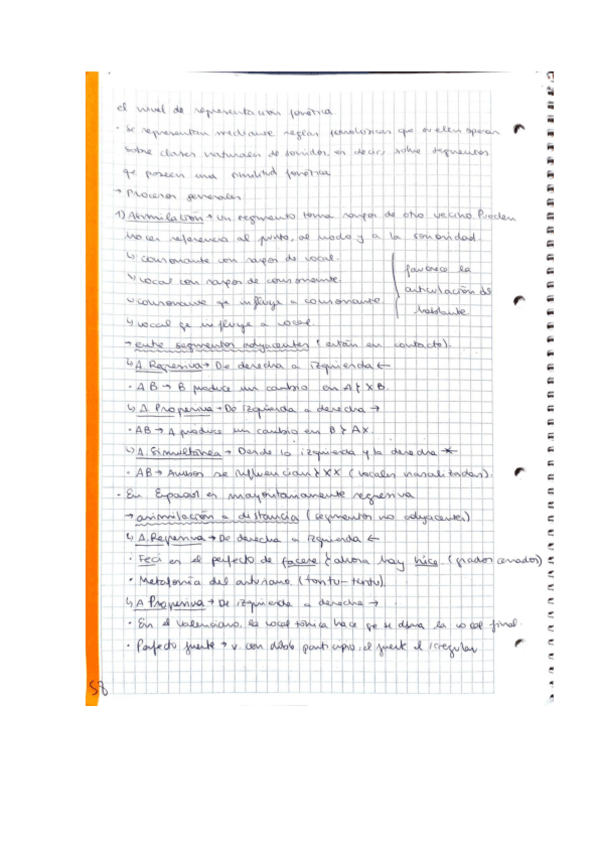 el nivel de representación fonética
· Se representan mediante reglas fonológicas que suelen operar
sobre clases naturales de sonidos, es decir, sobre segmentos
qe poseen una similitud fonética
→ Procesos generales
1) Asimilación → un segmento toma rasgos de otro vecino. Pueden
hacer referencia al punto, al modo y a la sonoridad.
↳ consonante con rasgos de vocal.
↳ vocal con rasgos de consonante.
↳ consonante qe influye a consonante
↳ vocal qe influye a vocal.
favorece la
articulación del
hablante
→ entre segmentos adyacentes (están en contacto).
↳ A. Regresiva → De derecha a izquierda ←
· AB → B produce un cambio en A } XB.
↳ A. Progresiva → De izquierda a derecha →
· AB → A produce un cambio en B } AX.
↳ A. Simultánea → Desde la izquierda y la derecha
· AB → Ambos se influencian } XX (vocales nasalizadas).
· En Español es mayoritariamente regresiva
→ asimilación a distancia (segmentos no adyacentes)
↳ A. Regresiva → De derecha a izquierda ←
· Feci es el perfecto de facere } ahora hay hice (grados cerrados)
· Metafonía del asturiano (tontu-tuntu).
↳ A. Progresiva → De izquierda a derecha →
· En el valenciano, la vocal tónica hace qe se abra la vocal final.
· Perfecto fuerte → v. con doble participio, el fuerte el irregular
58